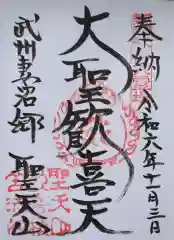 奉納
令和六年十一月三日
大聖歓喜天
武州妻沼郷
聖天山